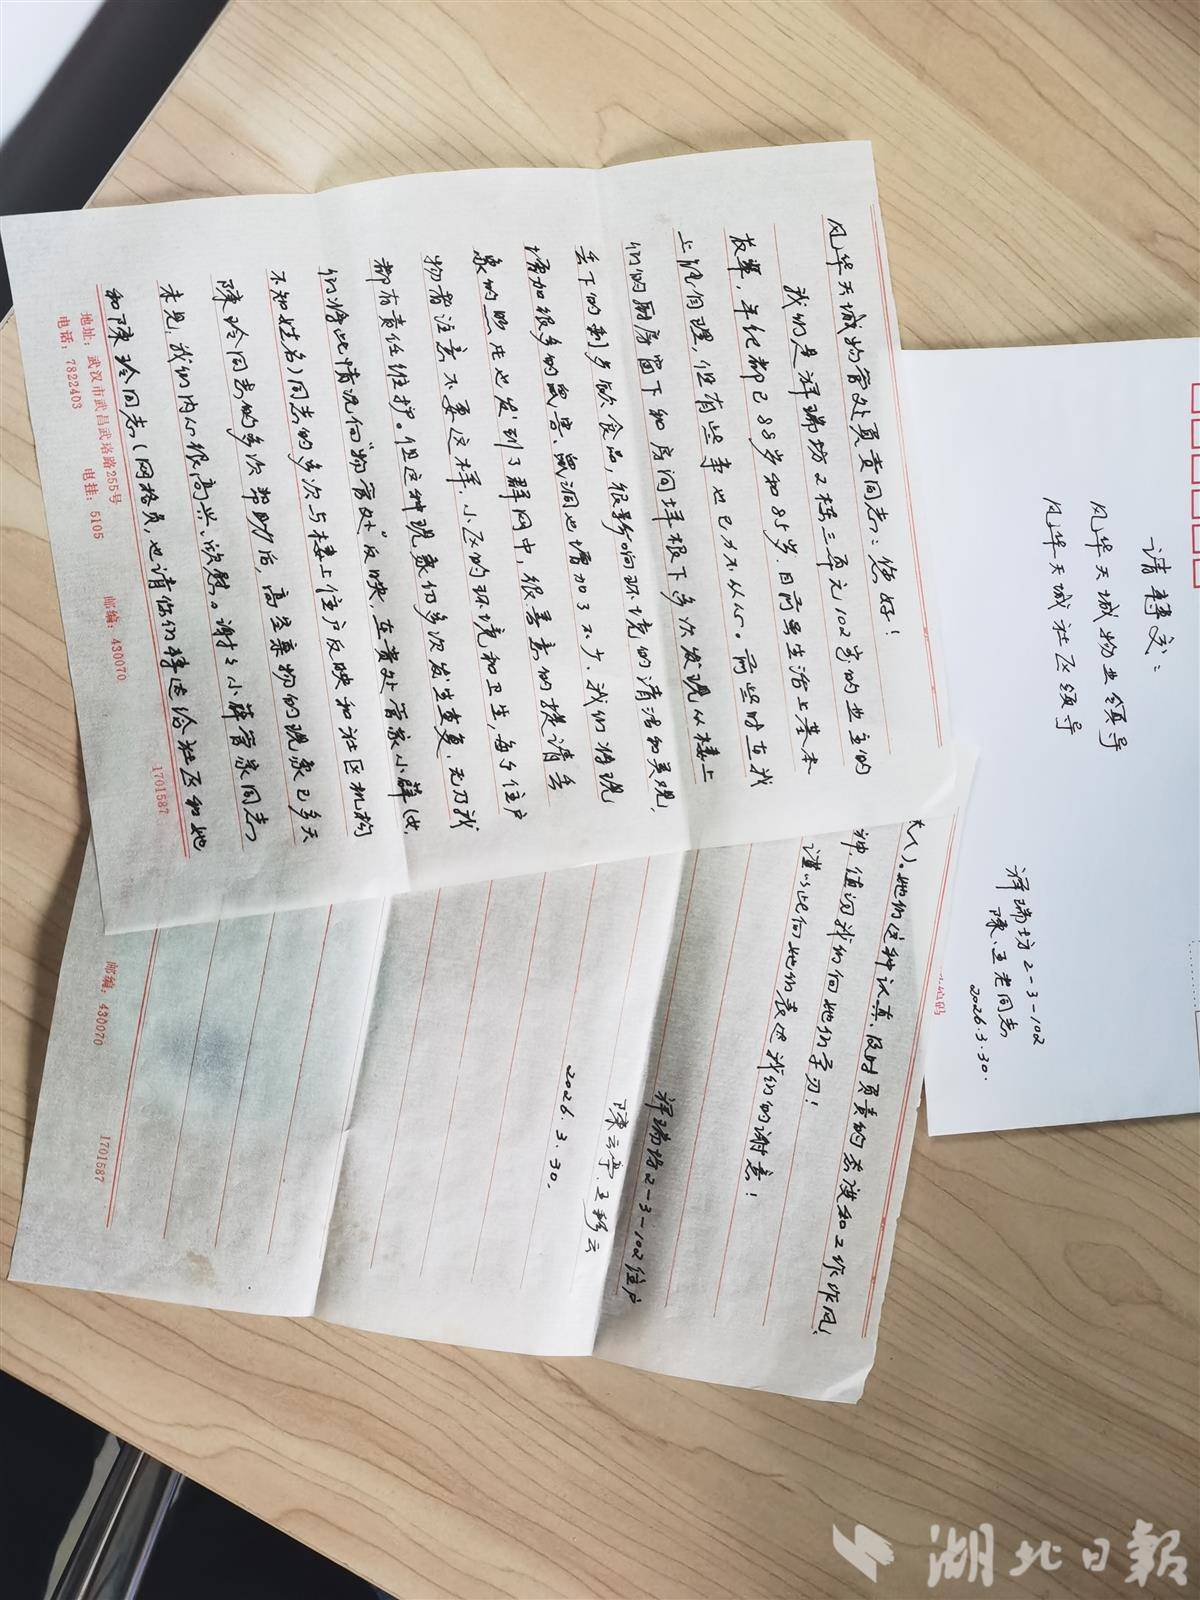 风华天城物管处负责同志：您好！
我们是祥瑞坊2栋三单元102室的业主的
长辈，年纪都已88岁和85岁，目前虽生活上基本
上能自理，但有些事也已力不从心。前些时在我
们的厨房窗下和房间墙根下多次发现从楼上
丢下的剩多饮食品，很影响环境的清洁和美观，
增加很多的鼠害、鼠洞也增加了不少，我们将现
象的照片也发到了群网中，很善意的提请丢
物者注意不要这样，小区的环境和卫生，每个住户
都有责任维护。但这种现象仍多次发生重复，无乃我
们将此情况向“物管处”反映，在贵处管家小薛（女，
不知姓名）同志的多次与楼上住户反映和社区机构
陈玲同志的多次帮助后，高空弃物的现象已多天
未见，我们内心很高兴、欣慰。谢谢小薛管家同志
和陈玲同志（网格员，也请你们转达给社区和她
地址：武汉市武昌武珞路255号
电话：7822403 电挂：5105 邮编：430070 1701587
本人）。她们这种认真、及时负责的态度和工作作风、
神，值得我们向她们学习！
谨以此向她们表达我们的谢意！
祥瑞坊2-3-102住户
陈云亭、王移云
2026.3.30.
邮编：430070 1701587
请转交：
风华天城物业领导
风华天城社区领导
祥瑞坊2-3-102
陈、王老同志
2026.3.30.
湖北日报